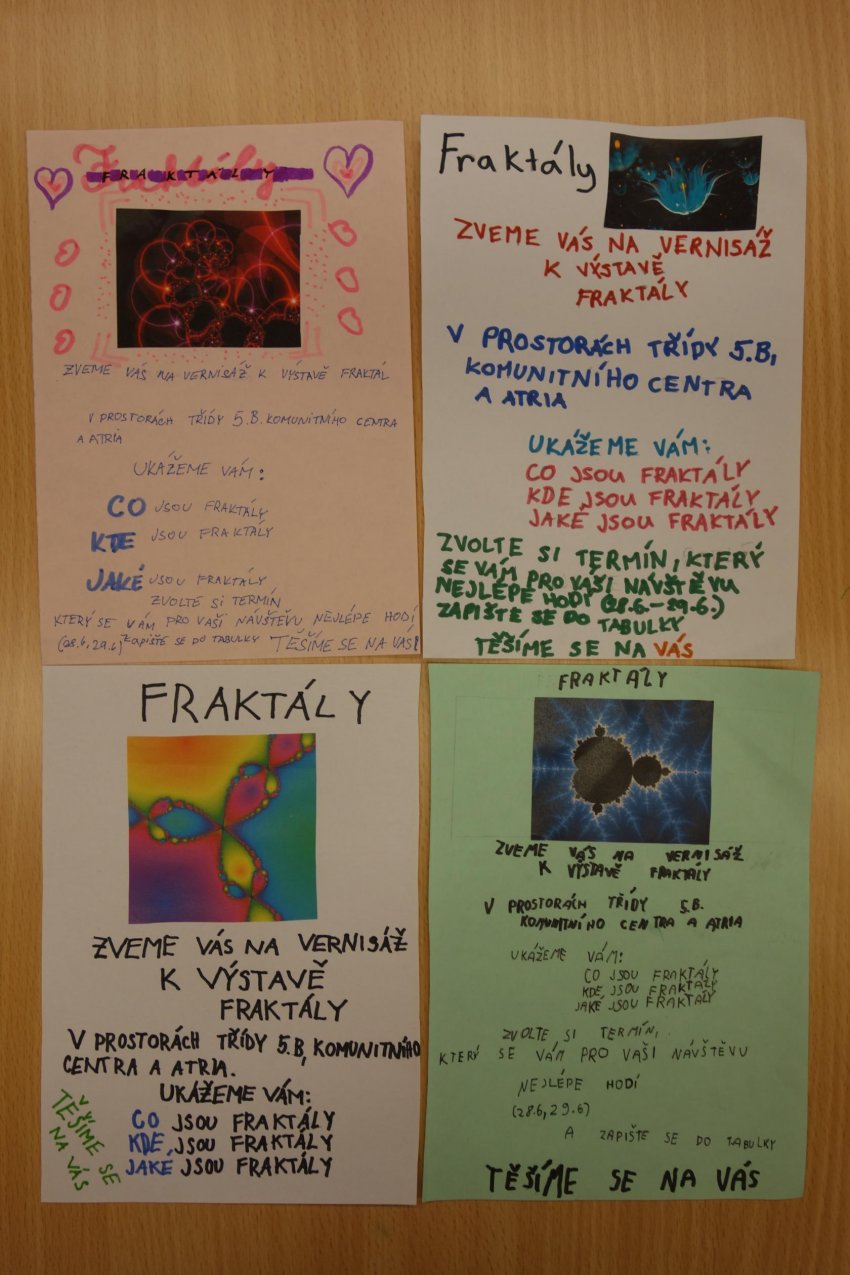 Fraktály
FRAKTÁLY
ZVEME VÁS NA VERNISÁŽ K VÝSTAVĚ FRAKTÁL
V PROSTORÁCH TŘÍDY 5.B. KOMUNITNÍHO CENTRA
A ATRIA
UKÁŽEME VÁM:
CO JSOU FRAKTÁLY
KDE JSOU FRAKTÁLY
JAKÉ JSOU FRAKTÁLY
ZVOLTE SI TERMÍN
KTERÝ SE VÁM PRO VAŠI NÁVŠTĚVU NEJLÉPE HODÍ
(28.6, 29.6) ZAPIŠTE SE DO TABULKY TĚŠÍME SE NA VÁS!
Fraktály
ZVEME VÁS NA VERNISÁŽ
K VÝSTAVĚ
FRAKTÁLY
V PROSTORÁCH TŘÍDY 5.B,
KOMUNITNÍHO CENTRA
A ATRIA
UKÁŽEME VÁM:
CO JSOU FRAKTÁLY
KDE JSOU FRAKTÁLY
JAKÉ JSOU FRAKTÁLY
ZVOLTE SI TERMÍN, KTERÝ
SE VÁM PRO VAŠI NÁVŠTĚVU
NEJLÉPE HODÍ (28.6.-29.6.)
ZAPIŠTE SE DO TABULKY
TĚŠÍME SE NA VÁS
FRAKTÁLY
ZVEME VÁS NA VERNISÁŽ
K VÝSTAVĚ
FRAKTÁLY
V PROSTORÁCH TŘÍDY 5.B, KOMUNITNÍHO
CENTRA A ATRIA.
UKÁŽEME VÁM:
CO JSOU FRAKTÁLY
KDE JSOU FRAKTÁLY
JAKÉ JSOU FRAKTÁLY
TĚŠÍME SE
NA VÁS
FRAKTÁLY
ZVEME VÁS NA VERNISÁŽ
K VÝSTAVĚ FRAKTÁLY
V PROSTORÁCH TŘÍDY 5.B.
KOMUNITNÍHO CENTRA A ATRIA
UKÁŽEME VÁM:
CO JSOU FRAKTÁLY
KDE JSOU FRAKTÁLY
JAKÉ JSOU FRAKTÁLY
ZVOLTE SI TERMÍN,
KTERÝ SE VÁM PRO VAŠI NÁVŠTĚVU
NEJLÉPE HODÍ
(28.6, 29.6)
A ZAPIŠTE SE DO TABULKY
TĚŠÍME SE NA VÁS